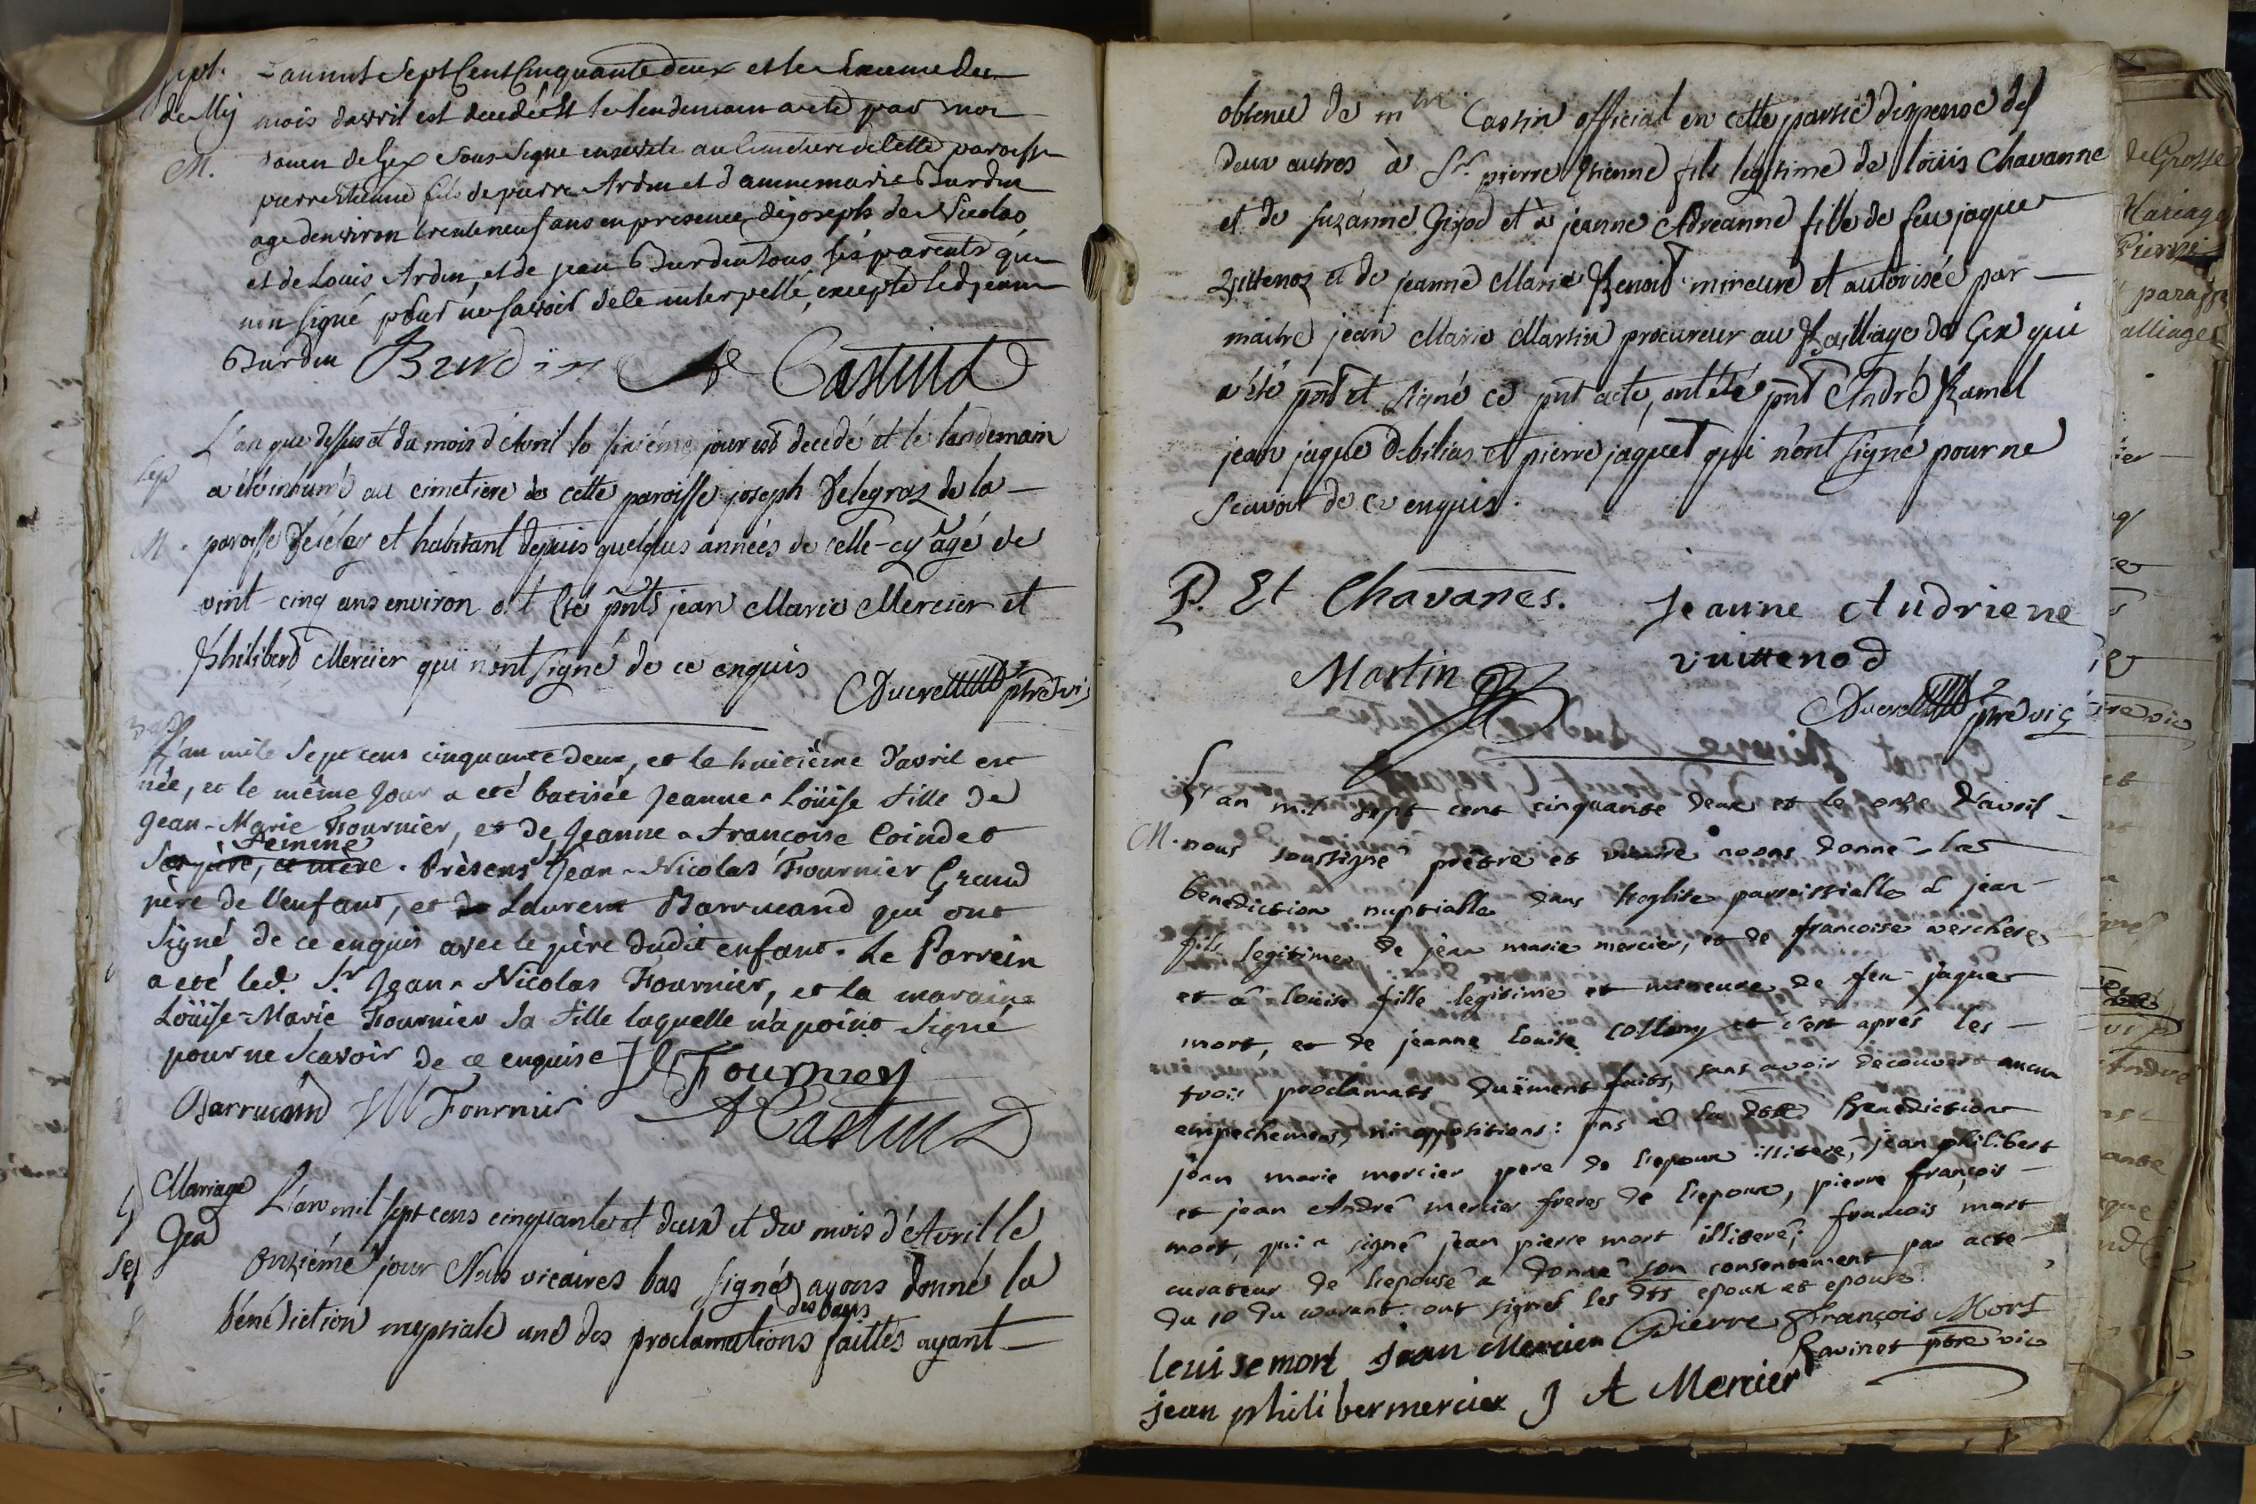 sept.
L'an mil Sept Cent Cinquante deux et le sixieme du
de Mij
mois davril est decedé et le lendemain a eté par moi
M.
doien de Gex sous signe enseveli au cimetiere de Cette paroisse
pierre Etienne fils de pierre Ardin et d'annemarie Burdin
age denviron trente neuf ans en presence de joseph de Nicolas
et de Louis Ardin, et de jean Burdin tous ses parents qui
non signé pour ne savoir de ce interpellé, excepté led. jean
Burdin Burdin Castin
L'an que dessus et du mois d'Avril le sixiéme jour est decedé et le landemain
Sep
a été inhumé au cimetiere de cette paroisse joseph Delegraz de la
M.
paroisse et habitant depuis quelques années de celle-cy agé de
vint-cinq ans environ ont été pnts jean Marie Mercier et
Philibert Mercier qui n'ont signé de ce enquis
Ducret ptre vic
Bap
L'an mile Sept cens cinquante deux, et le huitième d'avril est
née, et le même jour a eté batisée Jeanne-Loüise fille de
Jean-Marie Fournier, et de Jeanne-Francoise Coindet
femme
Ses père, et mère. Présens Jean-Nicolas Fournier Grand
père de l'enfant, et de Laurent Barrucand qui ont
Signé de ce enquis avec le père dudit enfant. Le Parrein
a eté led. Sr. Jean-Nicolas Fournier, et la maraine
Loüise-Marie Fournier Sa fille laquelle n'a point Signé
pour ne Scavoir de ce enquise Fournier
Barrucand Fournier
Castin
Mariage
L'an mil sept cens cinquante et deux et du mois d'Avril le
Gex
onziéme jour Nous vicaires bas signés ayons donné la
Sep
des bans
bénédiction nuptiale une des proclamations faittes ayant
obtenu de mre Castin official en cette partie dispense des
deux autres à Sr. pierre Etienne fils légitime de loüis Chavanne
et de suzanne Girod et à jeanne Adreanne fille de feu jaque
Vuittenoz et de jeanne Marie Benoit mineure et autorisée par
maitre jean Marie Martin procureur au Bailliage de Gex qui
a été pnt et signé ce pnt acte, ont été pnt André Ramel
jean jaque Debilias et pierre jaquet qui n'ont signé pour ne
scavoir de ce enquis.
P. Et Chavanes. Jeanne Andriene
vuittenod
Martin
Ducret ptre vic
L'an mil sept cent cinquante deux et le onze d'avril
M. nous soussigné prêtre et vicaire avons donné la
benediction nuptialle dans l'eglise parroissialle à jean
fils legitime de jean marie mercier, et de francoise verchere
et à loüise fille legitime et mineure de feu jaque
mort, et de jeanne Louise Collony et c'est aprés les
trois proclamats duëment faits, sans avoir decouvert aucun
empechement, ni oppositions: pns à la dte Benediction
jean marie mercier pere de l'epoux illiteré, jean philibert
et jean André mercier freres de l'epoux, pierre françois
mort, qui a signé jean pierre mort illiteré, francois mort
curateur de l'epouse a donné son consentement par acte
du 10 du courant. ont signés les dts epoux et epouse.
Pierre François Mort
Leuise mort Jean Mercier Ravinet ptre vic
jean philiber mercier J A Mercier